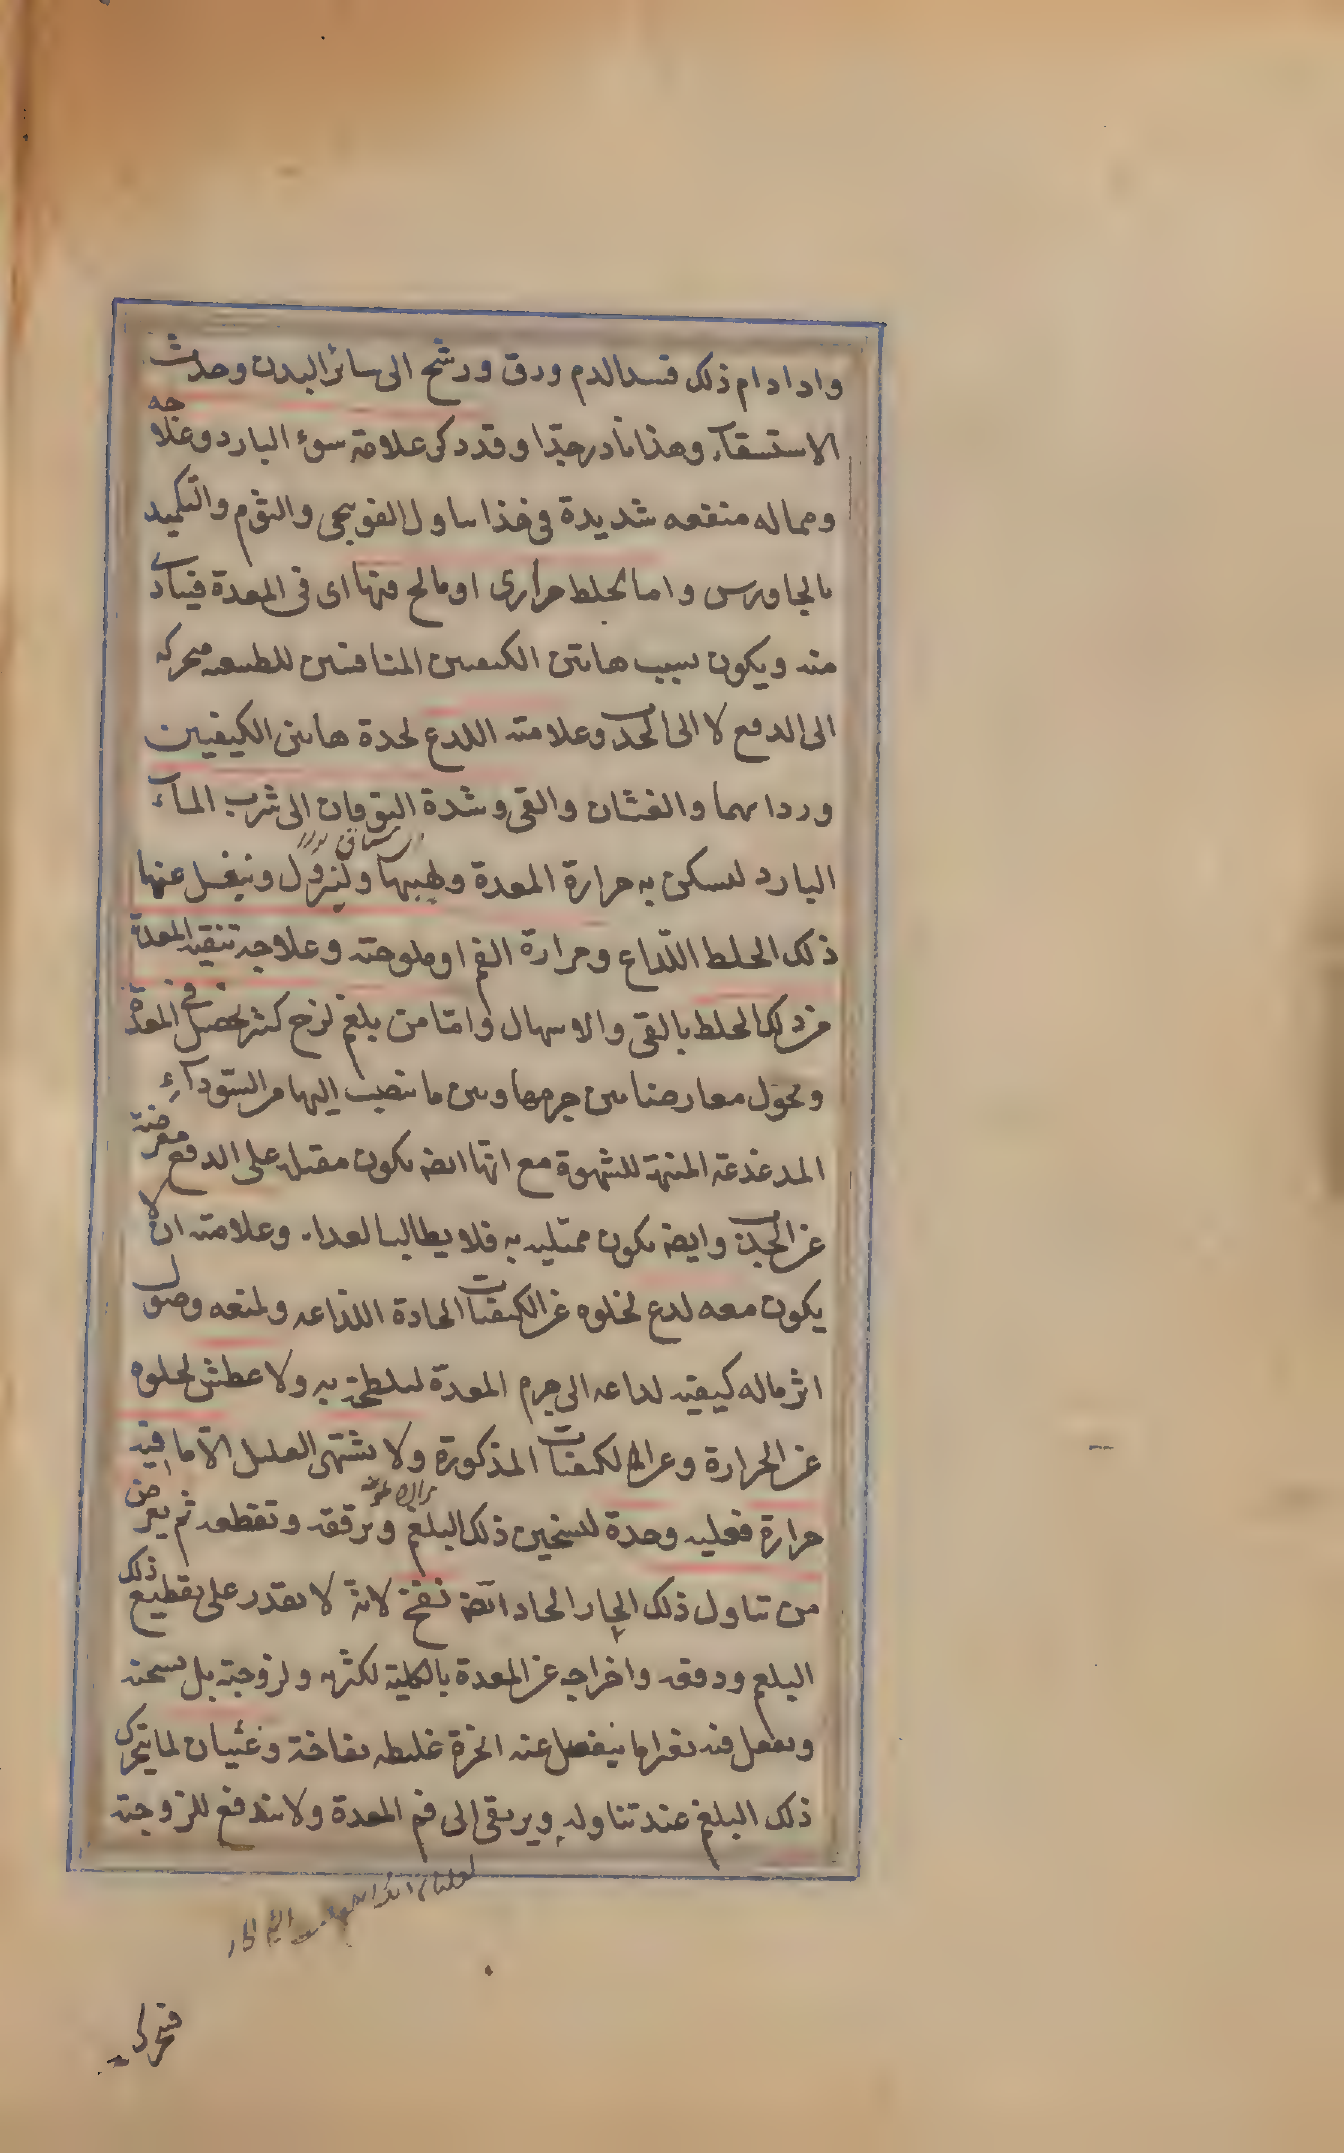 وادا دام ذلك فسد الدم ورق ورشح الى سائر البدن وحدث
الاستسقاء وهذا نادر جدّا وقد دكر علامة سوء البارد وعلاجه
ومماله منفعه شديدة فى هذا ساول الفوتنجى والثوم والتكميد
بالجاورس واما لخلط مرارى او مالح فيها اى فى المعدة فيتأذى
منه ويكون بسبب هاتين الكيفيتين المنافيتين للطبيعه متحركه
الى الدفع لا الى الجذب وعلامته اللدع لحدة هاتين الكيفيتين
ورداتهما والغثيان والقى وشدة التوقان الى شرب المآء
البارد لتسكن به حرارة المعدة ولهيبها ولينزول وينغسل عنها
ذلك الخلط اللذاع ومرارة الفم او ملوحته وعلاجه تنقيه المعدة
من ذلك الخلط بالقى والاسهال وامّا من بلغم لزج كثير يحصل فى المعدة
ويحول معارضا بين جرمها وبين ما ينصب اليها من السّودآء
المدغدغه المنبهة للشهوة مع انها ايضه يكون مقبله على الدفع معرضة
عن الجذب وايضه يكون ممتليه به فلا يطالب الغداء وعلامته ان لا
يكون معه لدع لخلوه عن الكيفيات الحادة اللذاعه ولمنعه وصول
اثر ماله كيفيه لداعه الى جرم المعدة لتلطخه به ولا عطش لخلوه
عن الحرارة وعن الكيفيات المذكورة ولا يشتهى العليل الّا ما فيه
حرارة فعليه وحدة لتسخين ذلك البلغم ويرققه وتقطعه ثم يعرض
من تناول ذلك الحار الحاد ايضه نفخ لانه لا يقدر على تقطيع ذلك
البلغم ودفعه واخراجه عن المعدة بالكلية لكثرته ولزوجته بل يسخنه
ويفعل فيه تغيرا ما ينفصل عنه ابخرة غليظه نفاخة وغثيان لما يتحرك
ذلك البلغم عند تناوله ويرتقى الى فم المعدة ولا يندفع للزوجته